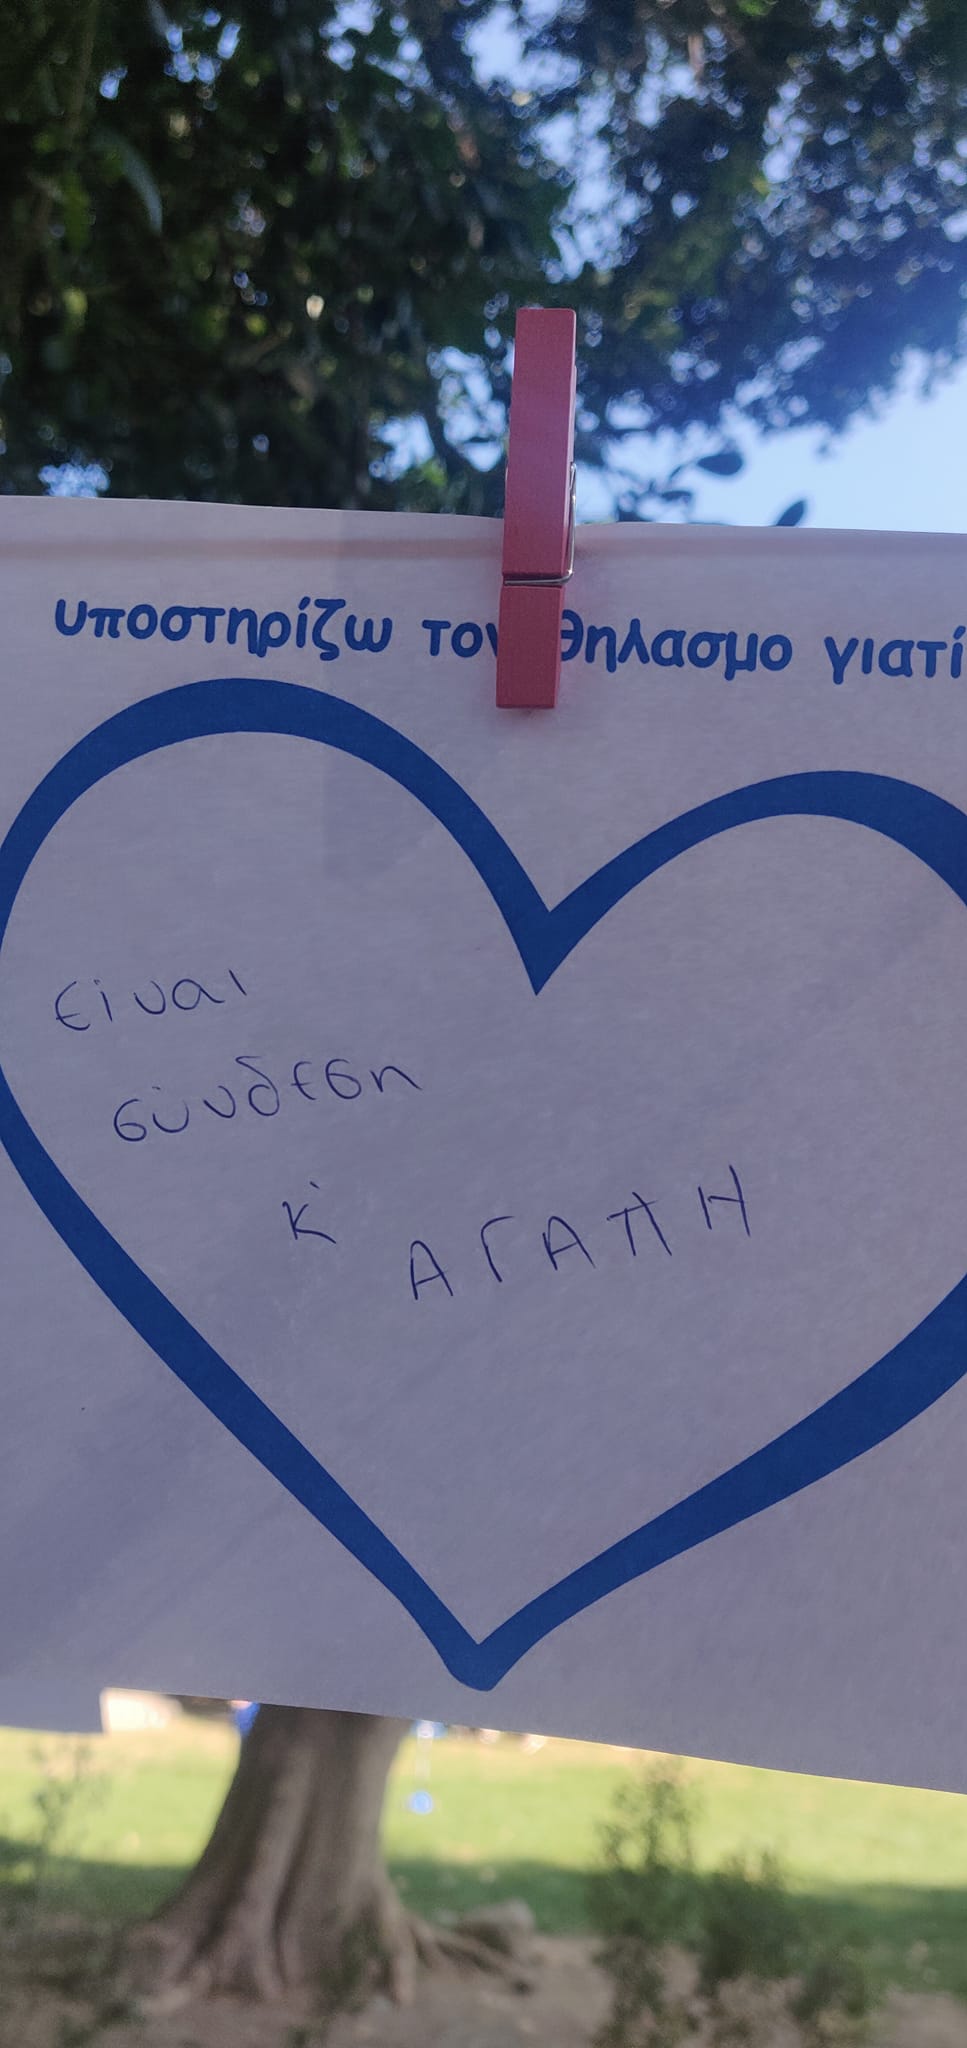 υποστηρίζω τον θηλασμο γιατί
είναι
σύνδεση
κ'
ΑΓΑΠΗ